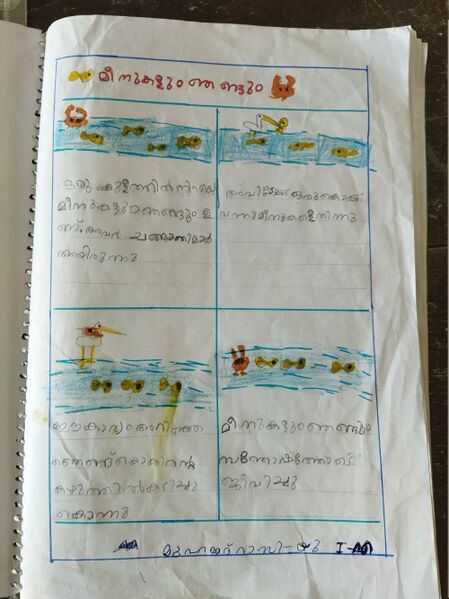 മീനുകളും ഞണ്ടും
ഒരു കുളത്തിൽ നിറയെ
മീനുകളും ഞണ്ടും ഉ
ണ്ട്. അവർ ചങ്ങാതിമാർ
ആയിരുന്നു
അവിടേക്ക് ഒരു കൊക്ക്
വന്നു മീനുകളെ തിന്നു
ഈ കാര്യം അറിഞ്ഞ
ഞണ്ട് കൊക്കിന്റെ
കഴുത്തിൽ കടിച്ചു
കൊന്നു
മീനുകളും ഞണ്ടും
സന്തോഷത്തോടെ
ജീവിച്ചു
മുഹമ്മദ് റാസി - യു I